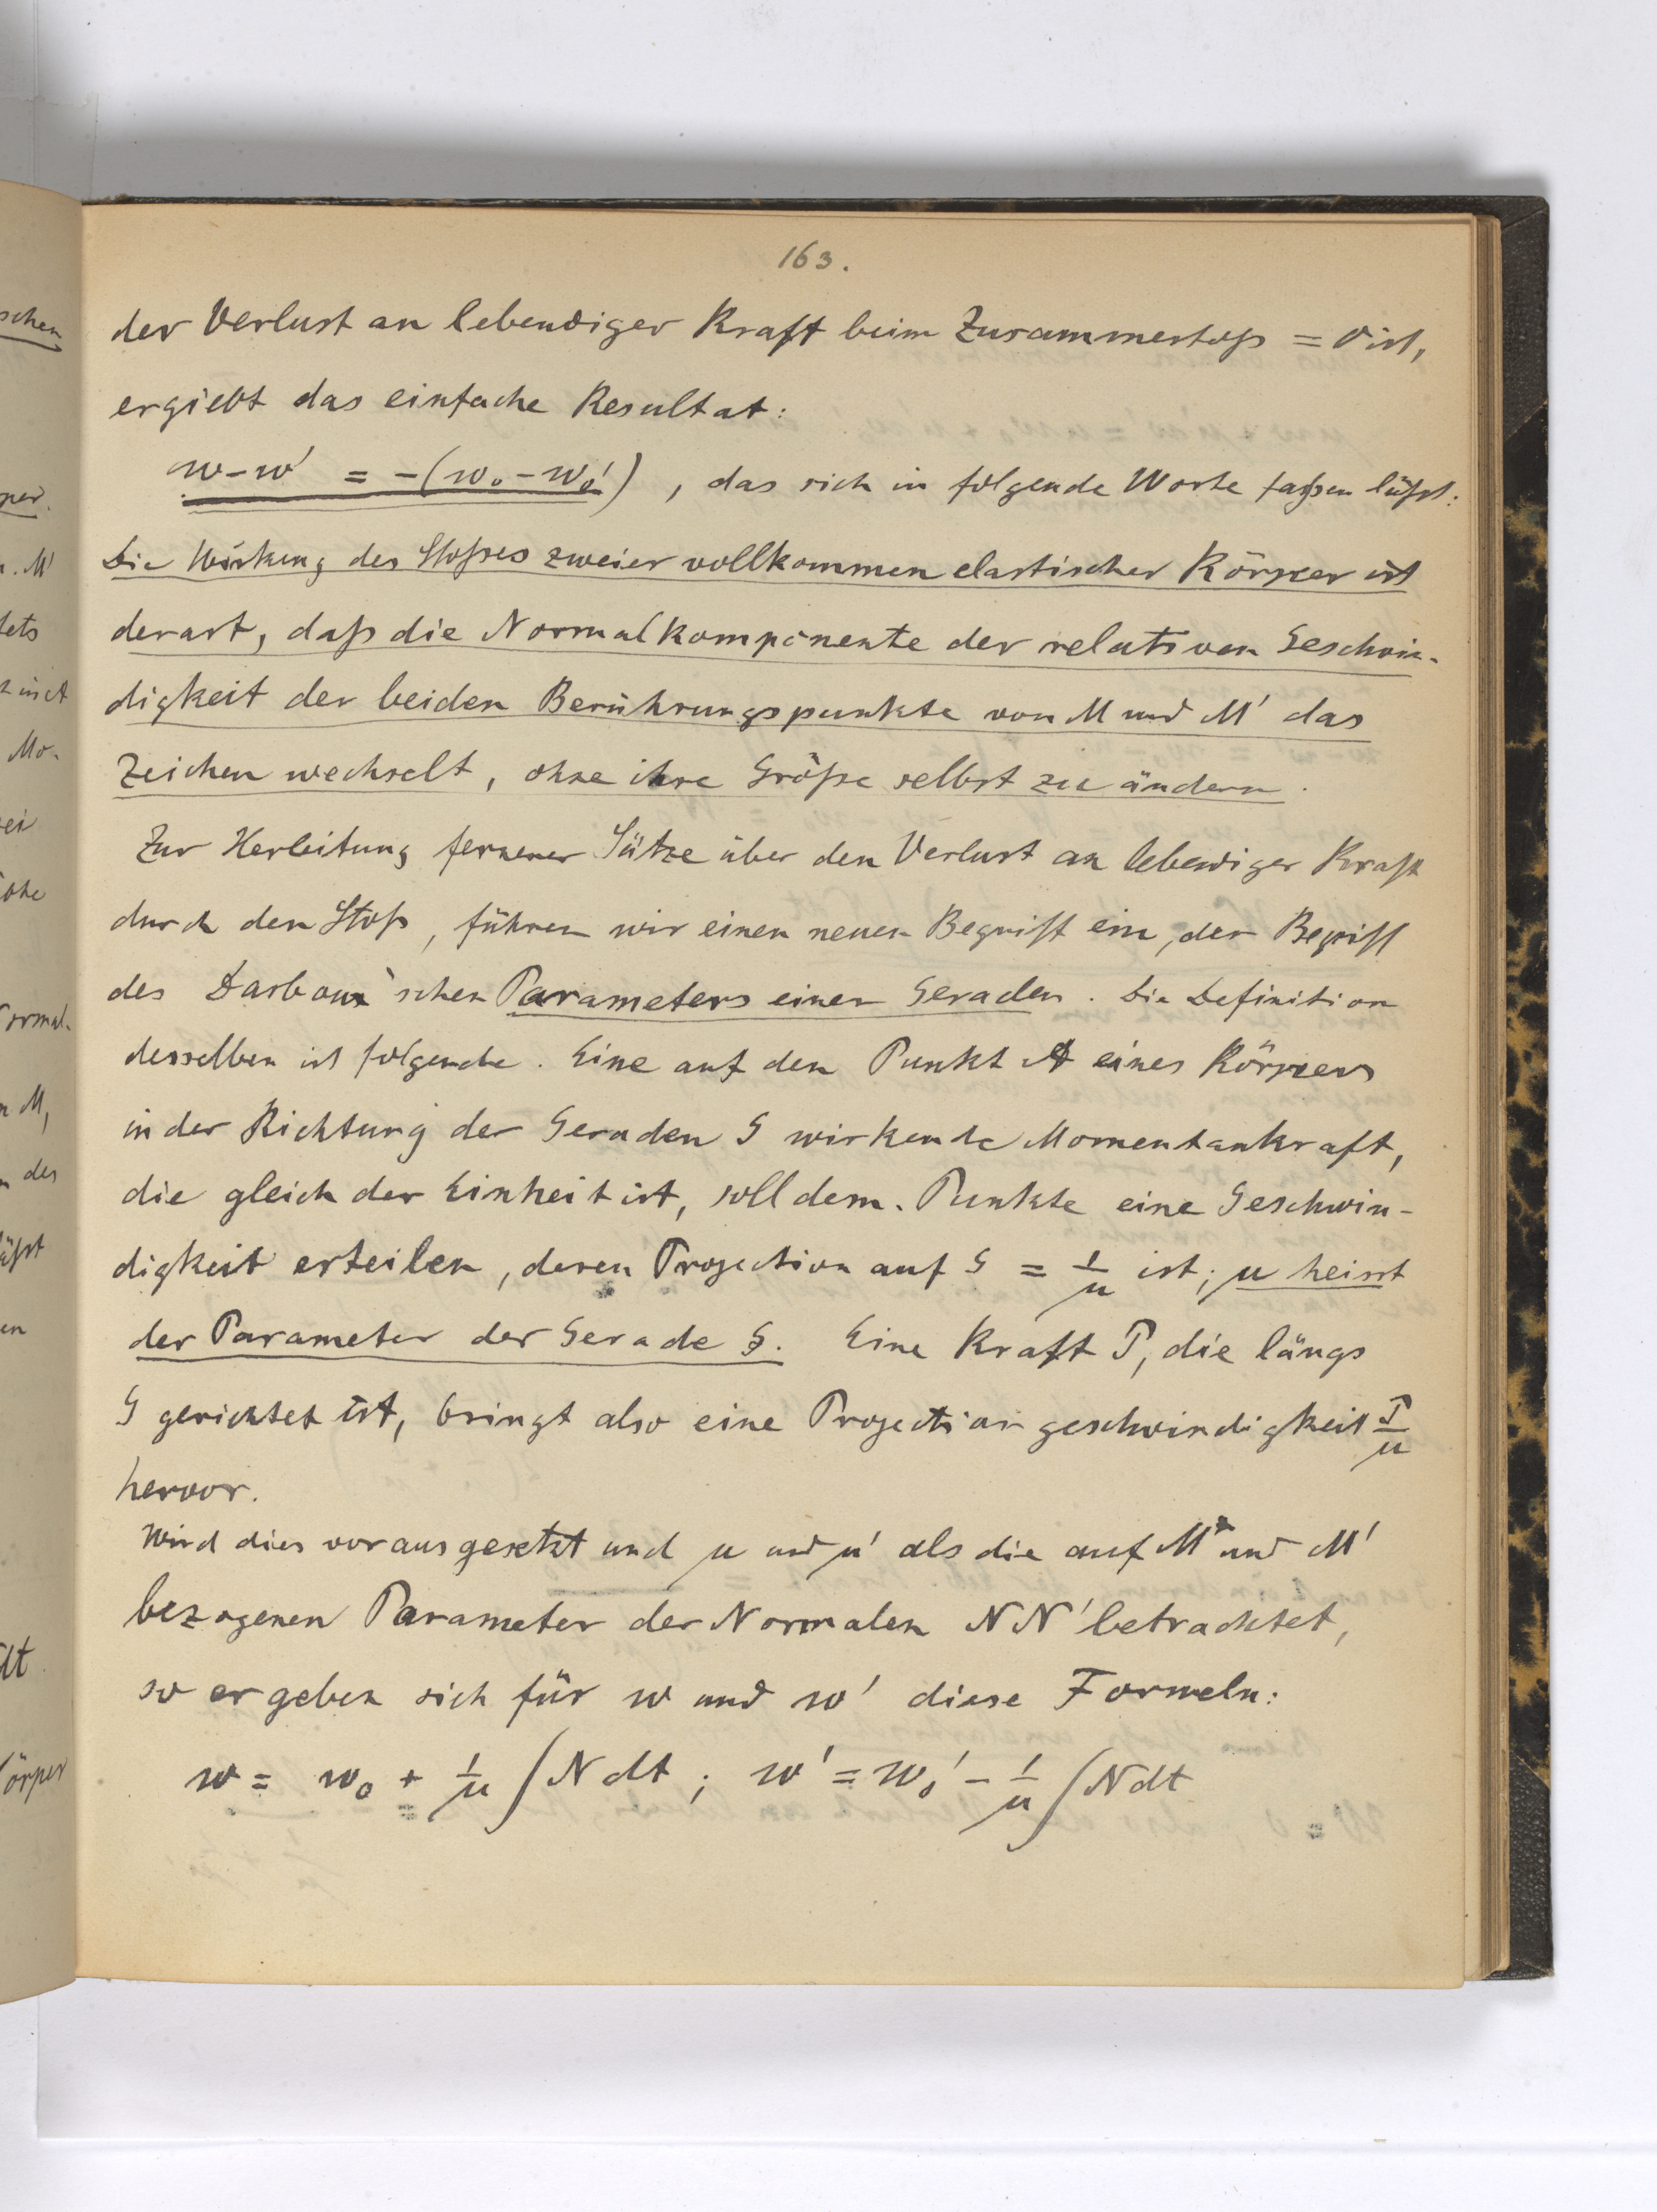 163.
der Verlust an lebendiger Kraft beim Zusammenstoß = 0 ist,
ergiebt das einfache Resultat:
w - w' = -(w₀ - w₀') , das sich in folgende Worte faßen läßt:
Die Wirkung des Stoßes zweier vollkommen elastischer Körper ist
derart, daß die Normalkomponente der relativen Geschwin-
digkeit der beiden Berührungspunkte von M und M' das
Zeichen wechselt, ohne ihre Größe selbst zu ändern.
Zur Herleitung fernerer Sätze über den Verlust an lebendiger Kraft
durch den Stoß, führen wir einen neuen Begriff ein, der Begriff
des Darboux'schen Parameters einer Geraden. Die Definition
desselben ist folgende. Eine auf den Punkt A eines Körpers
in der Richtung der Geraden G wirkende Momentankraft,
die gleich der Einheit ist, soll dem Punkte eine Geschwin-
digkeit erteilen, deren Projection auf G = 1/μ ist; μ heisst
der Parameter der Gerade G. Eine Kraft P, die längs
G gerichtet ist, bringt also eine Projectiongeschwindigkeit P/μ
hervor.
Wird dies vorausgesetzt und μ und μ' als die auf M und M'
bezogenen Parameter der Normalen NN' betrachtet,
so ergeben sich für w und w' diese Formeln:
w = w₀ + 1/μ ∫N dt ; w' = w₀' - 1/μ ∫N dt
schen
per.
. M'
tets
Mo-
ei
ormal-
M,
des
äßt
en
dt
örper